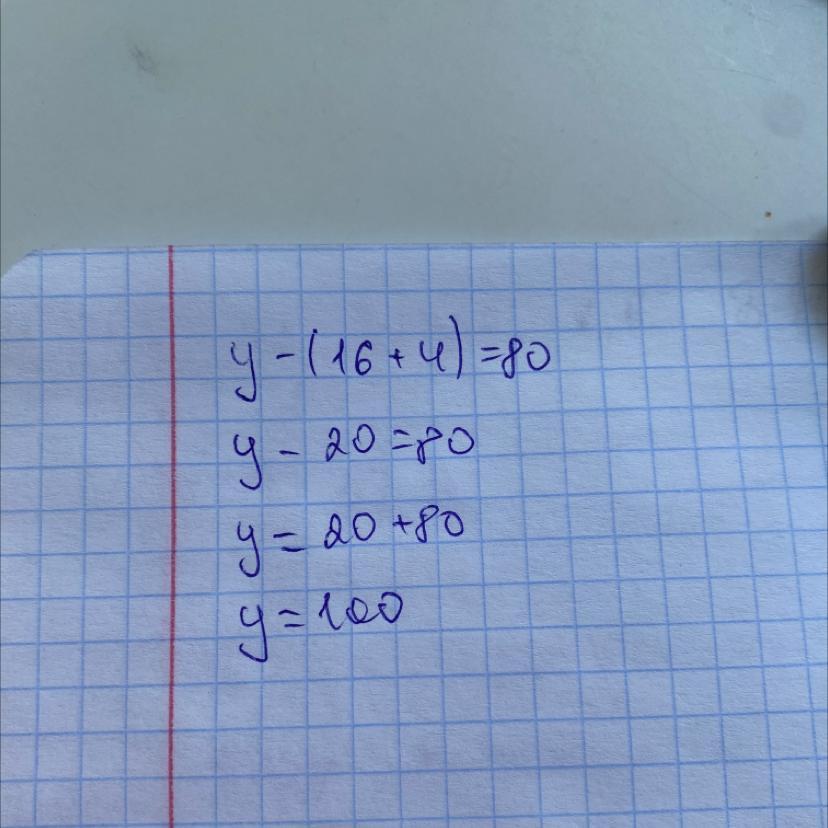 y - (16 + 4) = 80
y - 20 = 80
y = 20 + 80
y = 100